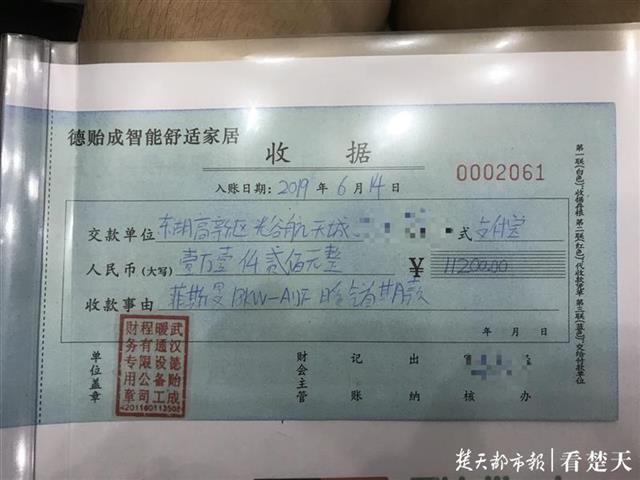 德贻成智能舒适家居
收据
0002061
入账日期：2019年6月14日
交款单位 东湖高新区光谷航天城 式 支付宝
人民币(大写) 壹万壹仟贰佰元整 ¥ 11200.00
收款事由 菲斯曼 首期款
年 月 日
单位盖章
财会主管
记账
出纳
核
办
武汉德贻成暖通设备工程有限公司财务专用章
4201160113508
第一联(白色)收据存根 第二联(红色)代收款凭单 第三联(蓝色)交给付款单位
楚天都市报|看楚天